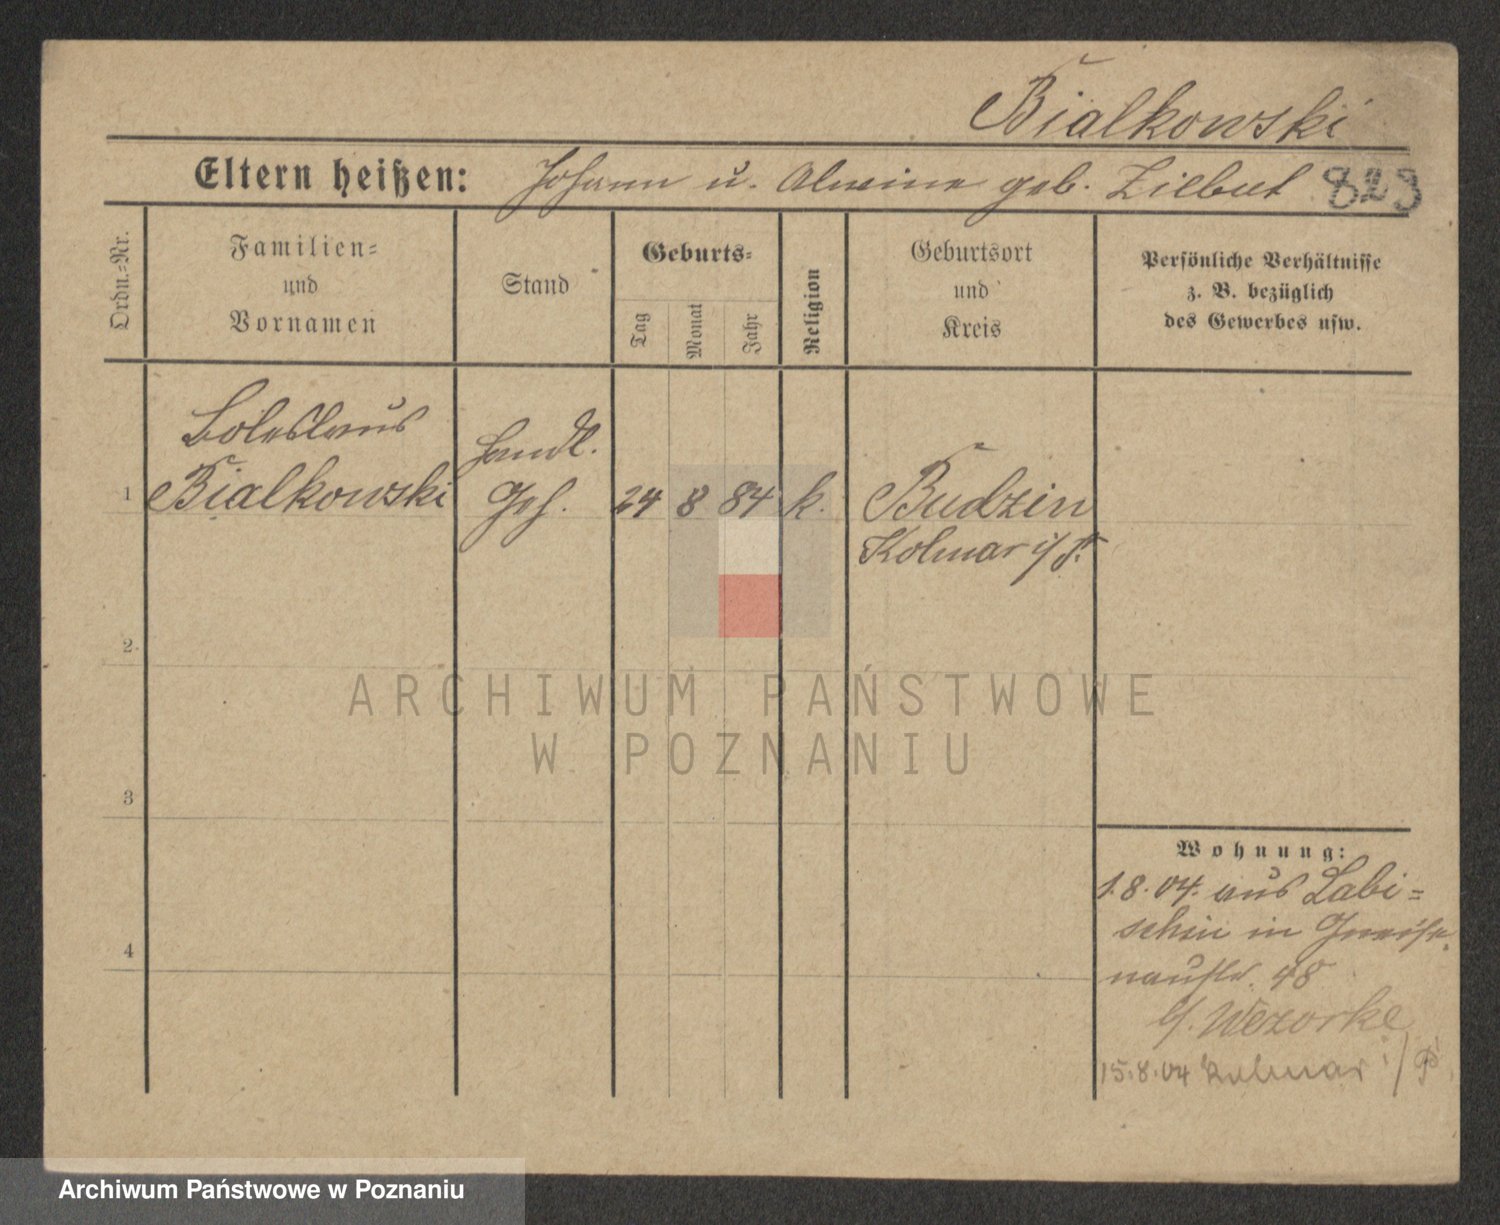 Bialkowski
Eltern heißen: Johann u. Alwine geb. Zilbut 823
Ordn.-Nr.
Familien-
und
Vornamen
Stand
Geburts-
Tag
Monat
Jahr
Religion
Geburtsort
und
Kreis
Persönliche Verhältnisse
z. B. bezüglich
des Gewerbes usw.
Boleslaus Handl.
1 Bialkowski Geh. 24 8 84 k. Budzin
Kolmar i/P.
2
3
4
ARCHIWUM PAŃSTWOWE
W POZNANIU
Wohnung:
1.8.04. aus Labi-
schin in Gneise-
naustr. 48
b/. Wezorke
15.8.04 Kolmar i/P
Archiwum Państwowe w Poznaniu